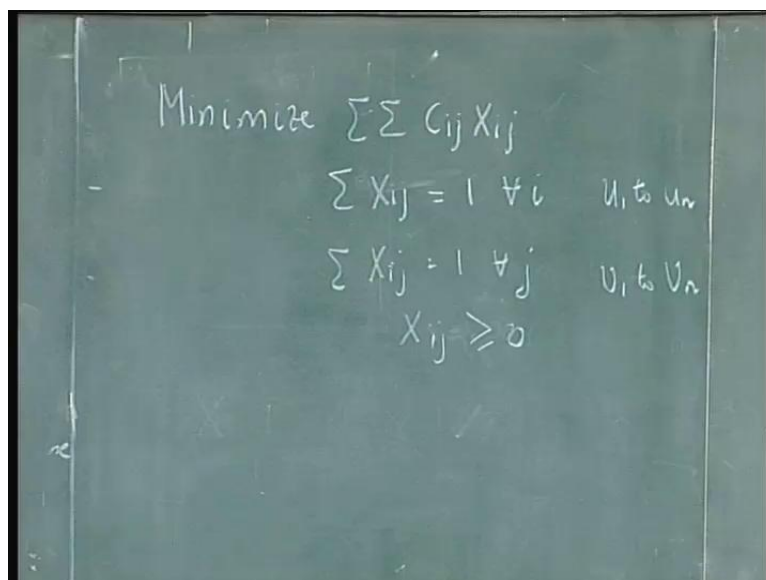 Minimize ΣΣ Cij Xij
Σ Xij = 1 ∀i u1 to un
Σ Xij = 1 ∀j v1 to vn
Xij ≥ 0